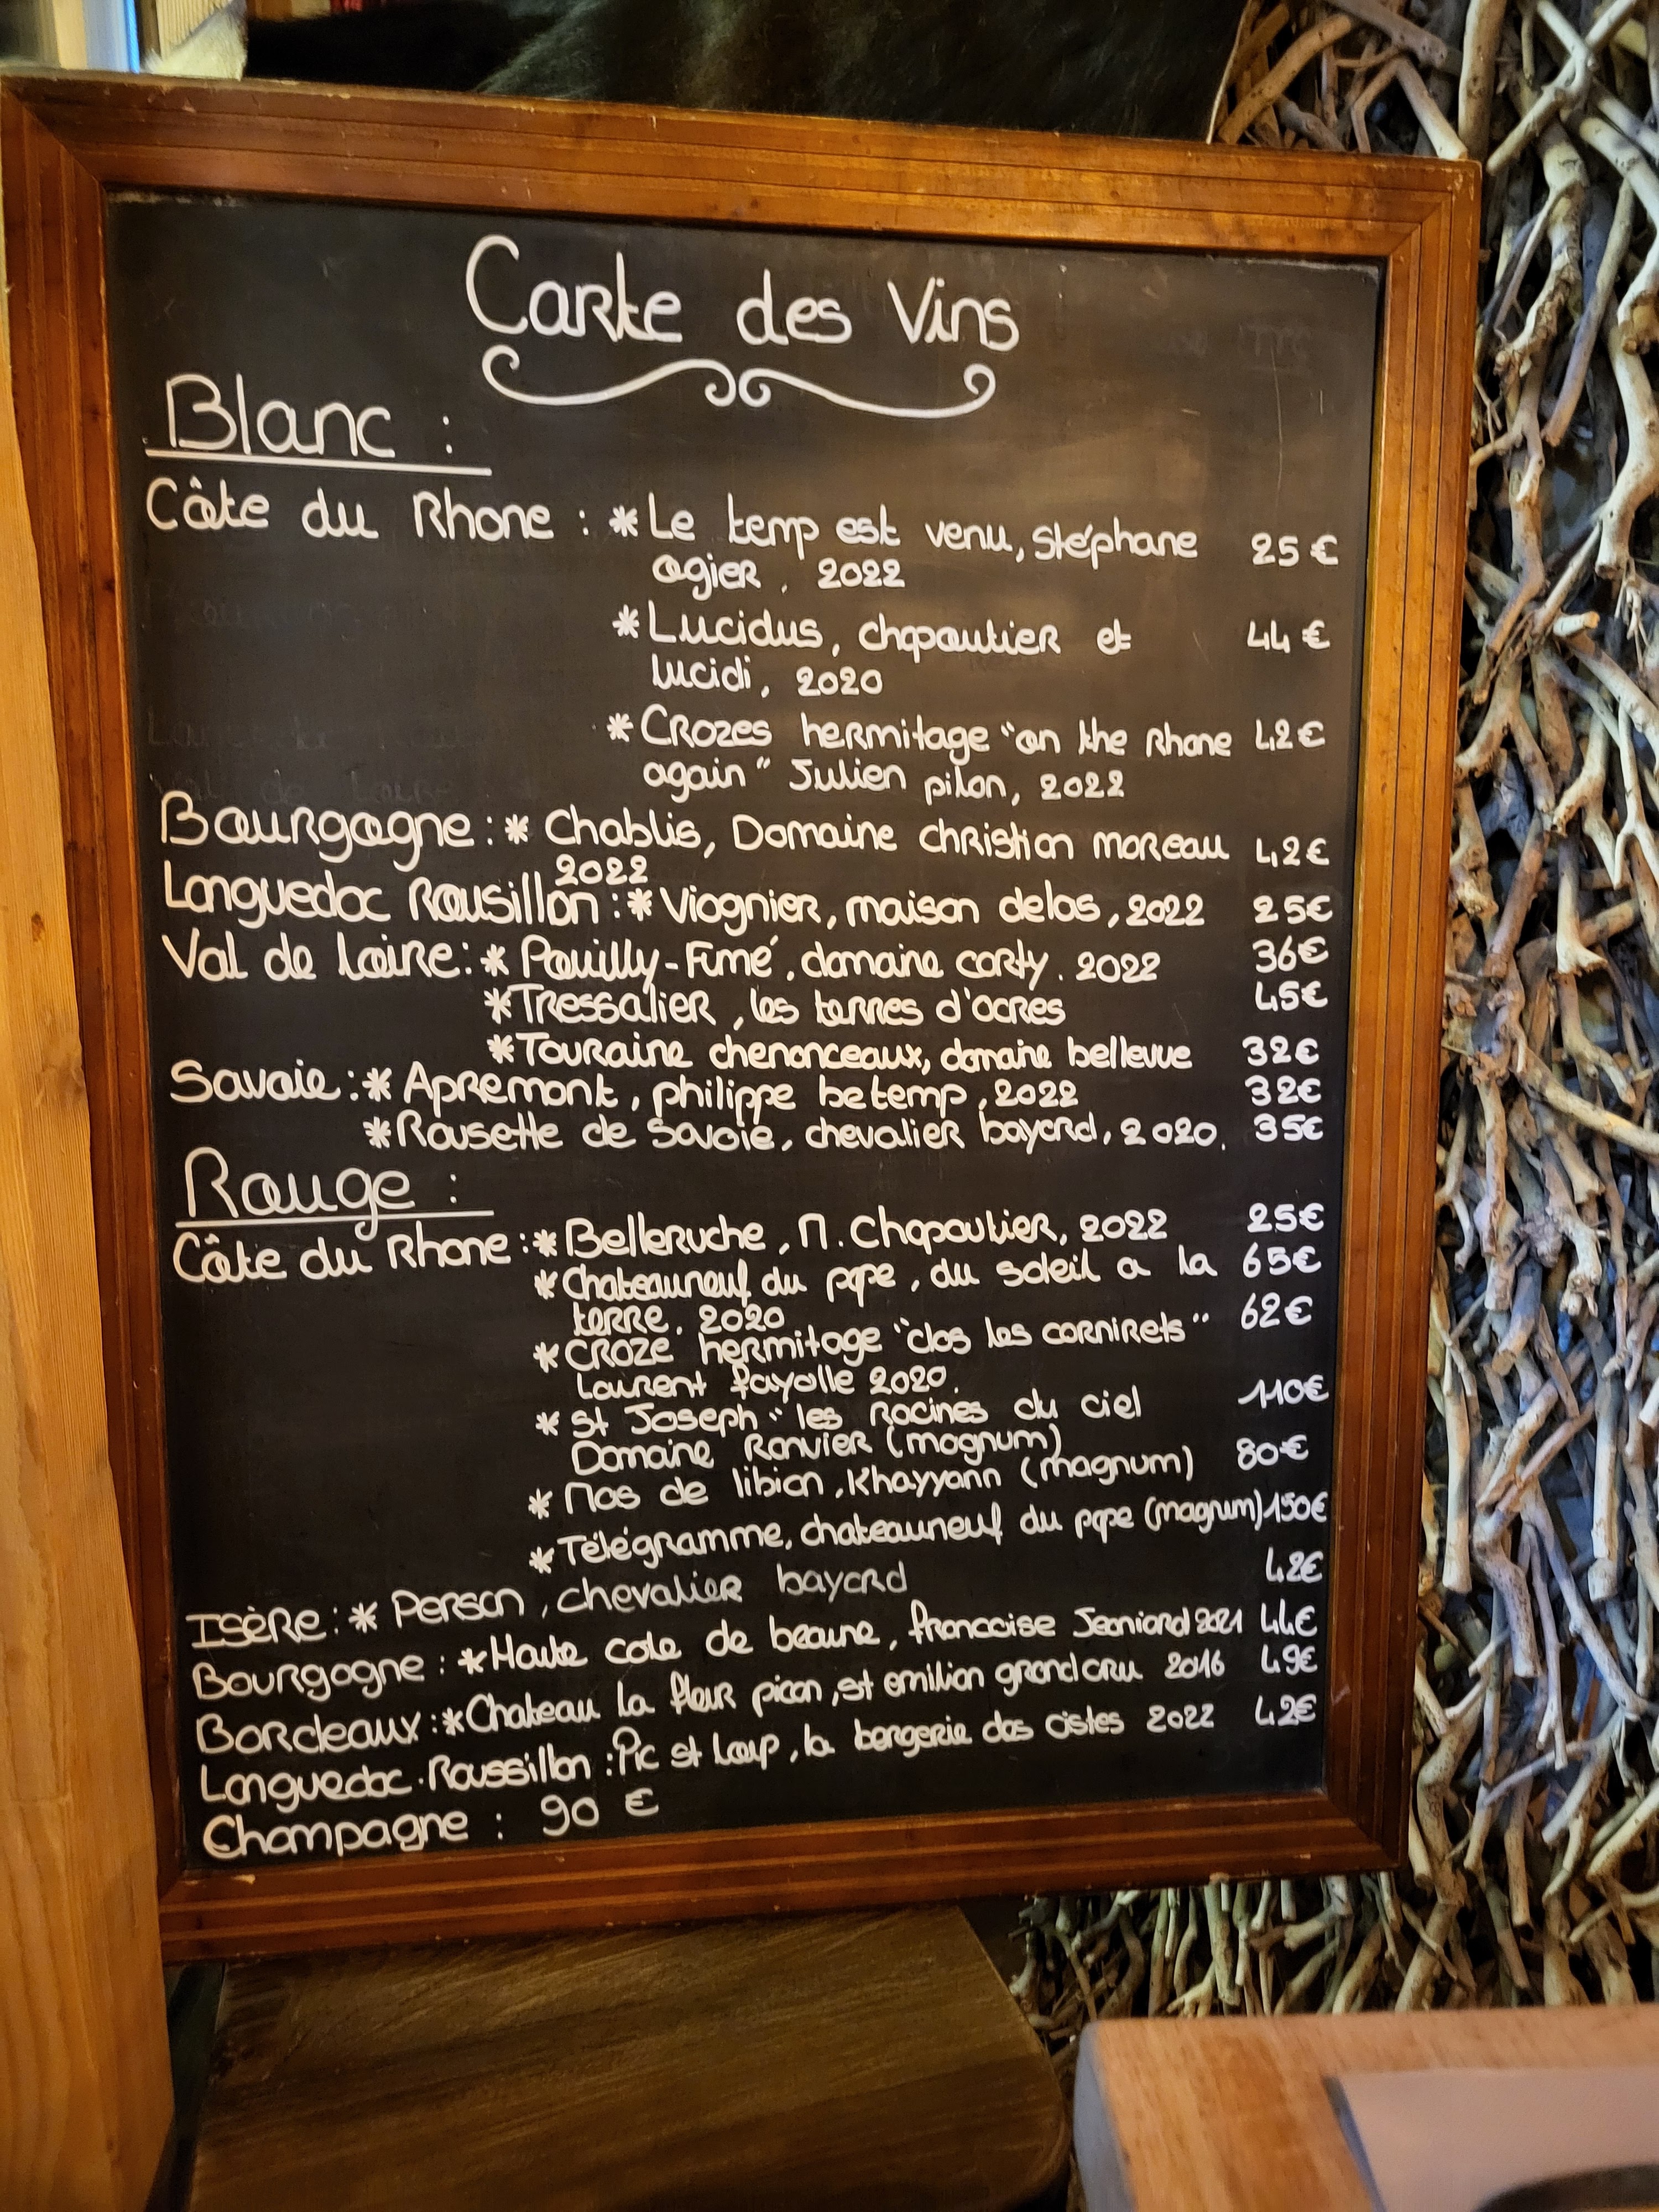 Carte des Vins
Blanc :
Côte du Rhone : * Le temp est venu, Stéphane 25 €
ogier, 2022
* Lucidus, chapoutier et 44 €
lucidi, 2020
* Crozes hermitage "on the Rhone 42 €
again" Julien pilon, 2022
Bourgogne : * Chablis, Domaine christian moreau 42 €
2022
Languedoc Rousillon : * Viognier, maison delas, 2022 25 €
Val de loire : * Pouilly-Fumé, domaine corty. 2022 36 €
* Tressalier, les terres d'ocres 45 €
* Touraine chenonceaux, domaine bellevue 32 €
Savoie : * Apremont, philippe betemp, 2022 32 €
* Rousette de Savoie, chevalier bayard, 2020. 35 €
Rouge :
Côte du Rhone : * Belleruche, M. Chapoutier, 2022 25 €
* Chateauneuf du pape, du soleil a la 65 €
terre. 2020
* Croze hermitage "clos les cornirets" 62 €
Laurent fayolle 2020.
* St Joseph " les Racines du ciel 110 €
Domaine Ronvier (magnum)
* Mas de libian, Khayyann (magnum) 80 €
* Télégramme, chateauneuf du pape (magnum) 150 €
Isère : * Persan, chevalier bayard 42 €
Bourgogne : * Haute cote de beaune, francoise Jeaniard 2021 44 €
Bordeaux : * Chateau la fleur picon, st emilion grand cru 2016 49 €
Languedoc.Roussillon : Pic st loup, la bergerie des cistes 2022 42 €
Champagne : 90 €